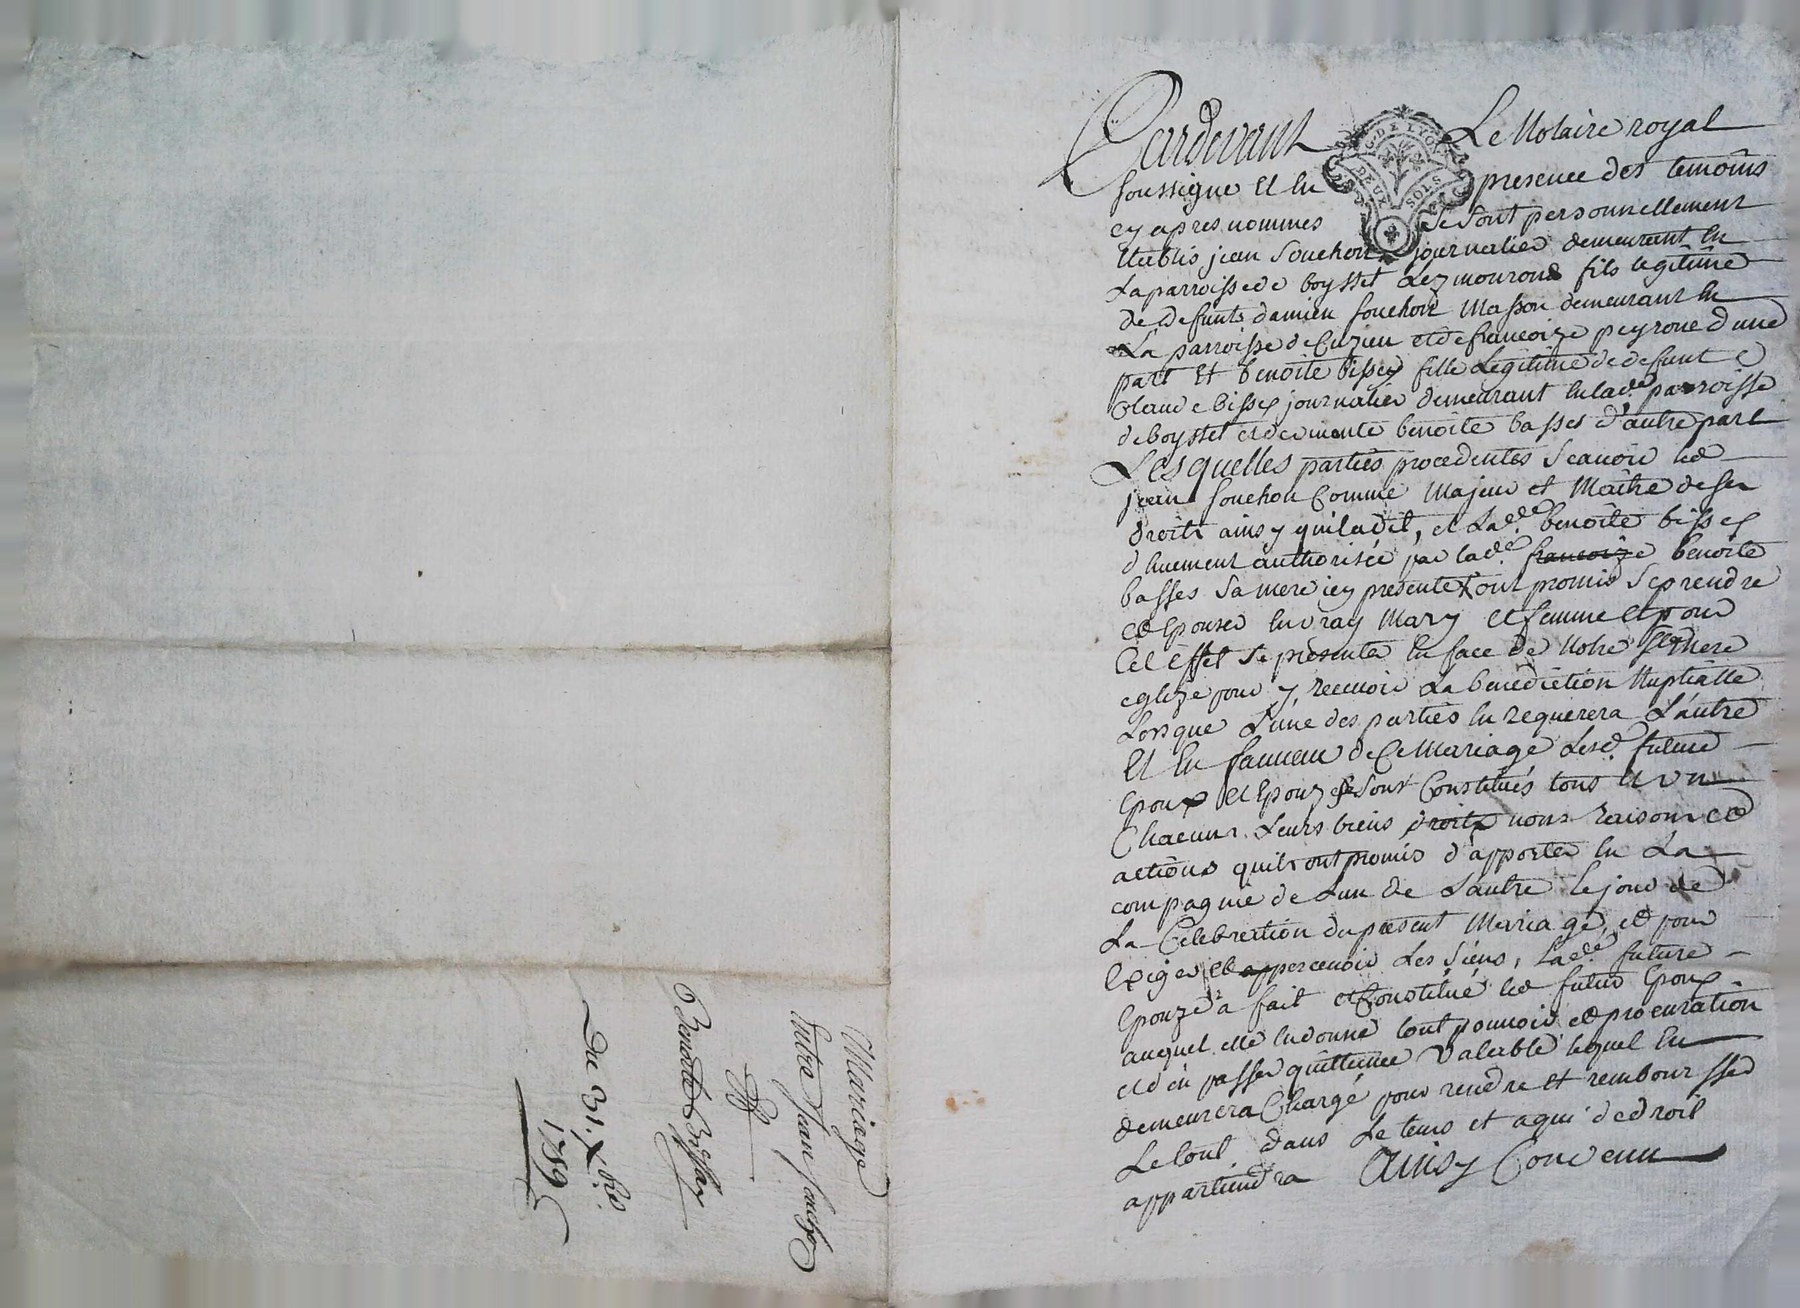 Mariage
Entre Jean Souchon
Et
Benoite Bissay
Du 31. Xbre.
1789
G. DE LYON
DEUX SOLS
Pardevant Le Notaire royal
soussigné Et En presence des temoins
cy apres nommes se sont personnellement
Etablis jean Souchon journalier demeurant En
La parroisse de boysset Lez mourond fils legitime
de defunts damien souchon Masson demeurant En
La parroisse de Cuzieu et de francoize peyrone d'une
part Et benoite bissey fille Legitime de defunt
Claude bissey journalier demeurant En lade. parroisse
de boysset et de vivante benoite basses d'autre part
Lesquelles parties procedentes scavoir led
jean souchon Comme Majeur et Maitre de ses
droits ainsy quil a dit, et Lade. benoite bissey
dhuement authorisée par lade. francoize benoite
basses sa mere icy presente ont promis se prendre
et Epouser En vray Mary et femme et pour
Cet Effet se presenter En face de Notre Ste Mere
eglize pour y recevoir La benediction Nuptialle
Lorsque L'une des parties En requerera L'autre
Et En faveur de Ce Mariage Lesd. futurs
Epoux et Epouze se sont Constitués tous Et un
Chacuns Leurs biens droits noms Raisons et
actions quils ont promis d'apporter En La
compagnie de L'un de L'autre Le jour de
La Celebration du present Mariage, et pour
Exiger et appercevoir Les siens, Lade. future
Epouze a fait et Constitué led futur Epoux
auquel elle En donne tout pouvoir et procuration
et d'en passer quittance Valeable lequel En
demeurera Chargé pour rendre et rembourser
Le tout dans Le tems et a qui de droit
appartiendra Ainsy Convenu